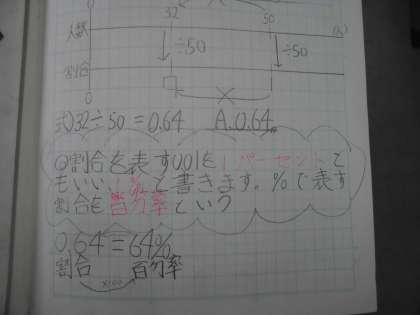 0 32 50
人数 (人)
÷50 ÷50
割合
0 □
式)32÷50=0.64 A.0.64
◎割合を表す0.01を1パーセントと
もいい、1%と書きます。%で表す
割合を百分率という
0.64=64%
割合 百分率
×100